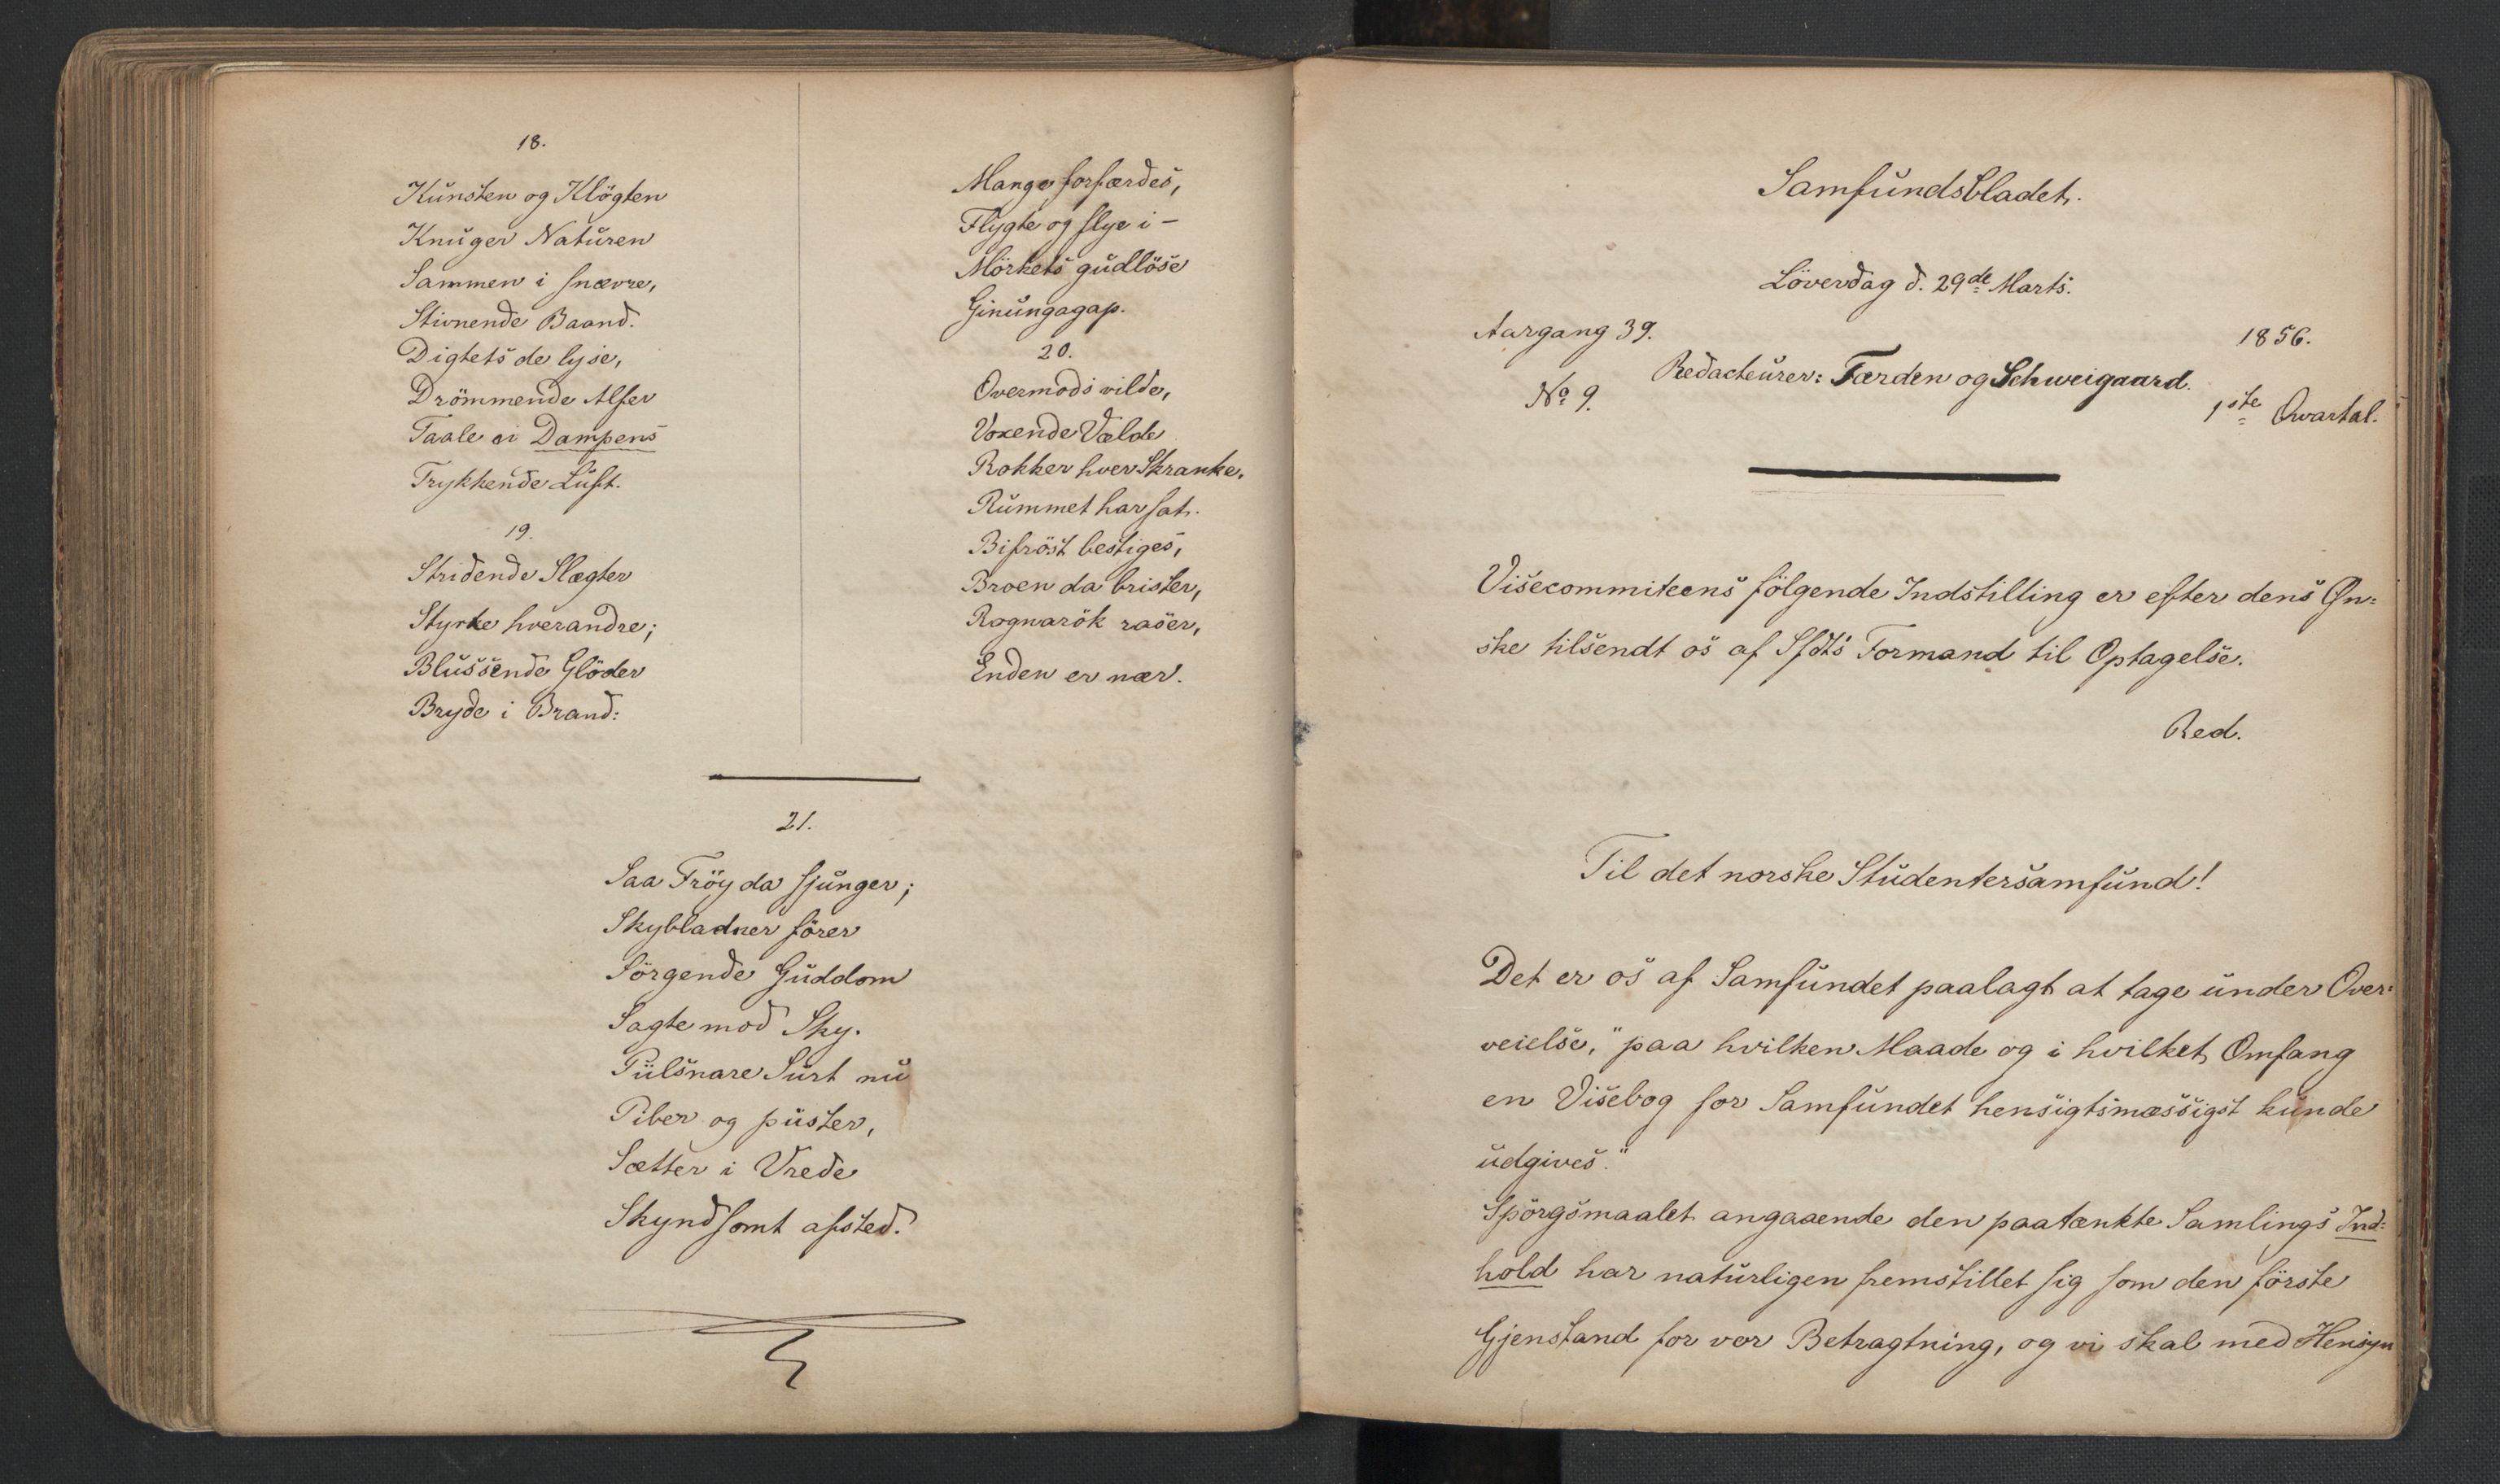 18.
Kunsten og Klögten
Knuger Naturen
Sammen i snævre,
Stivnende Baand.
Digtets de lyse,
Drömmende Alfer
Taale ei Dampens
Trykkende Luft.
19.
Stridende Slægter
Styrke hverandre;
Blussende Glöder
Bryde i Brand:
Mange forfærdes,
Flygte og flye i –
Mörkets gudlöse
Ginungagap.
20.
Overmods vilde,
Voxende Vælde
Rokker hver Skranke,
Rummet har sat.
Bifröst bestiges,
Broen da brister,
Ragnarök raser,
Enden er nær.
21.
Saa Fröy da sjunger;
Skybladner förer
Sörgende Guddom
Sagte mod Sky.
Piilsnare Surt nu
Piber og puster,
Sætter i Vrede
Skyndsomt afsted.
Samfundsbladet.
Löverdag d. 29de Marts.
Aargang 39. 1856.
Redacteurer: Færden og Schweigaard.
No 9. 1ste Qvartal.
Visecommiteens fölgende Indstilling er efter dens Øn-
ske tilsendt os af Sfdts Formand til Optagelse.
Red.
Til det norske Studentersamfund!
Det er os af Samfundet paalagt at tage under Over-
veielse, "paa hvilken Maade og i hvilket Omfang
en Visebog for Samfundet hensigtsmæssigst kunde
udgives."
Spörgsmaalet angaaende den paatænkte Samlings Ind-
hold har naturligen fremstillet sig som den förste
Gjenstand for vor Betragtning, og vi skal med Hensyn